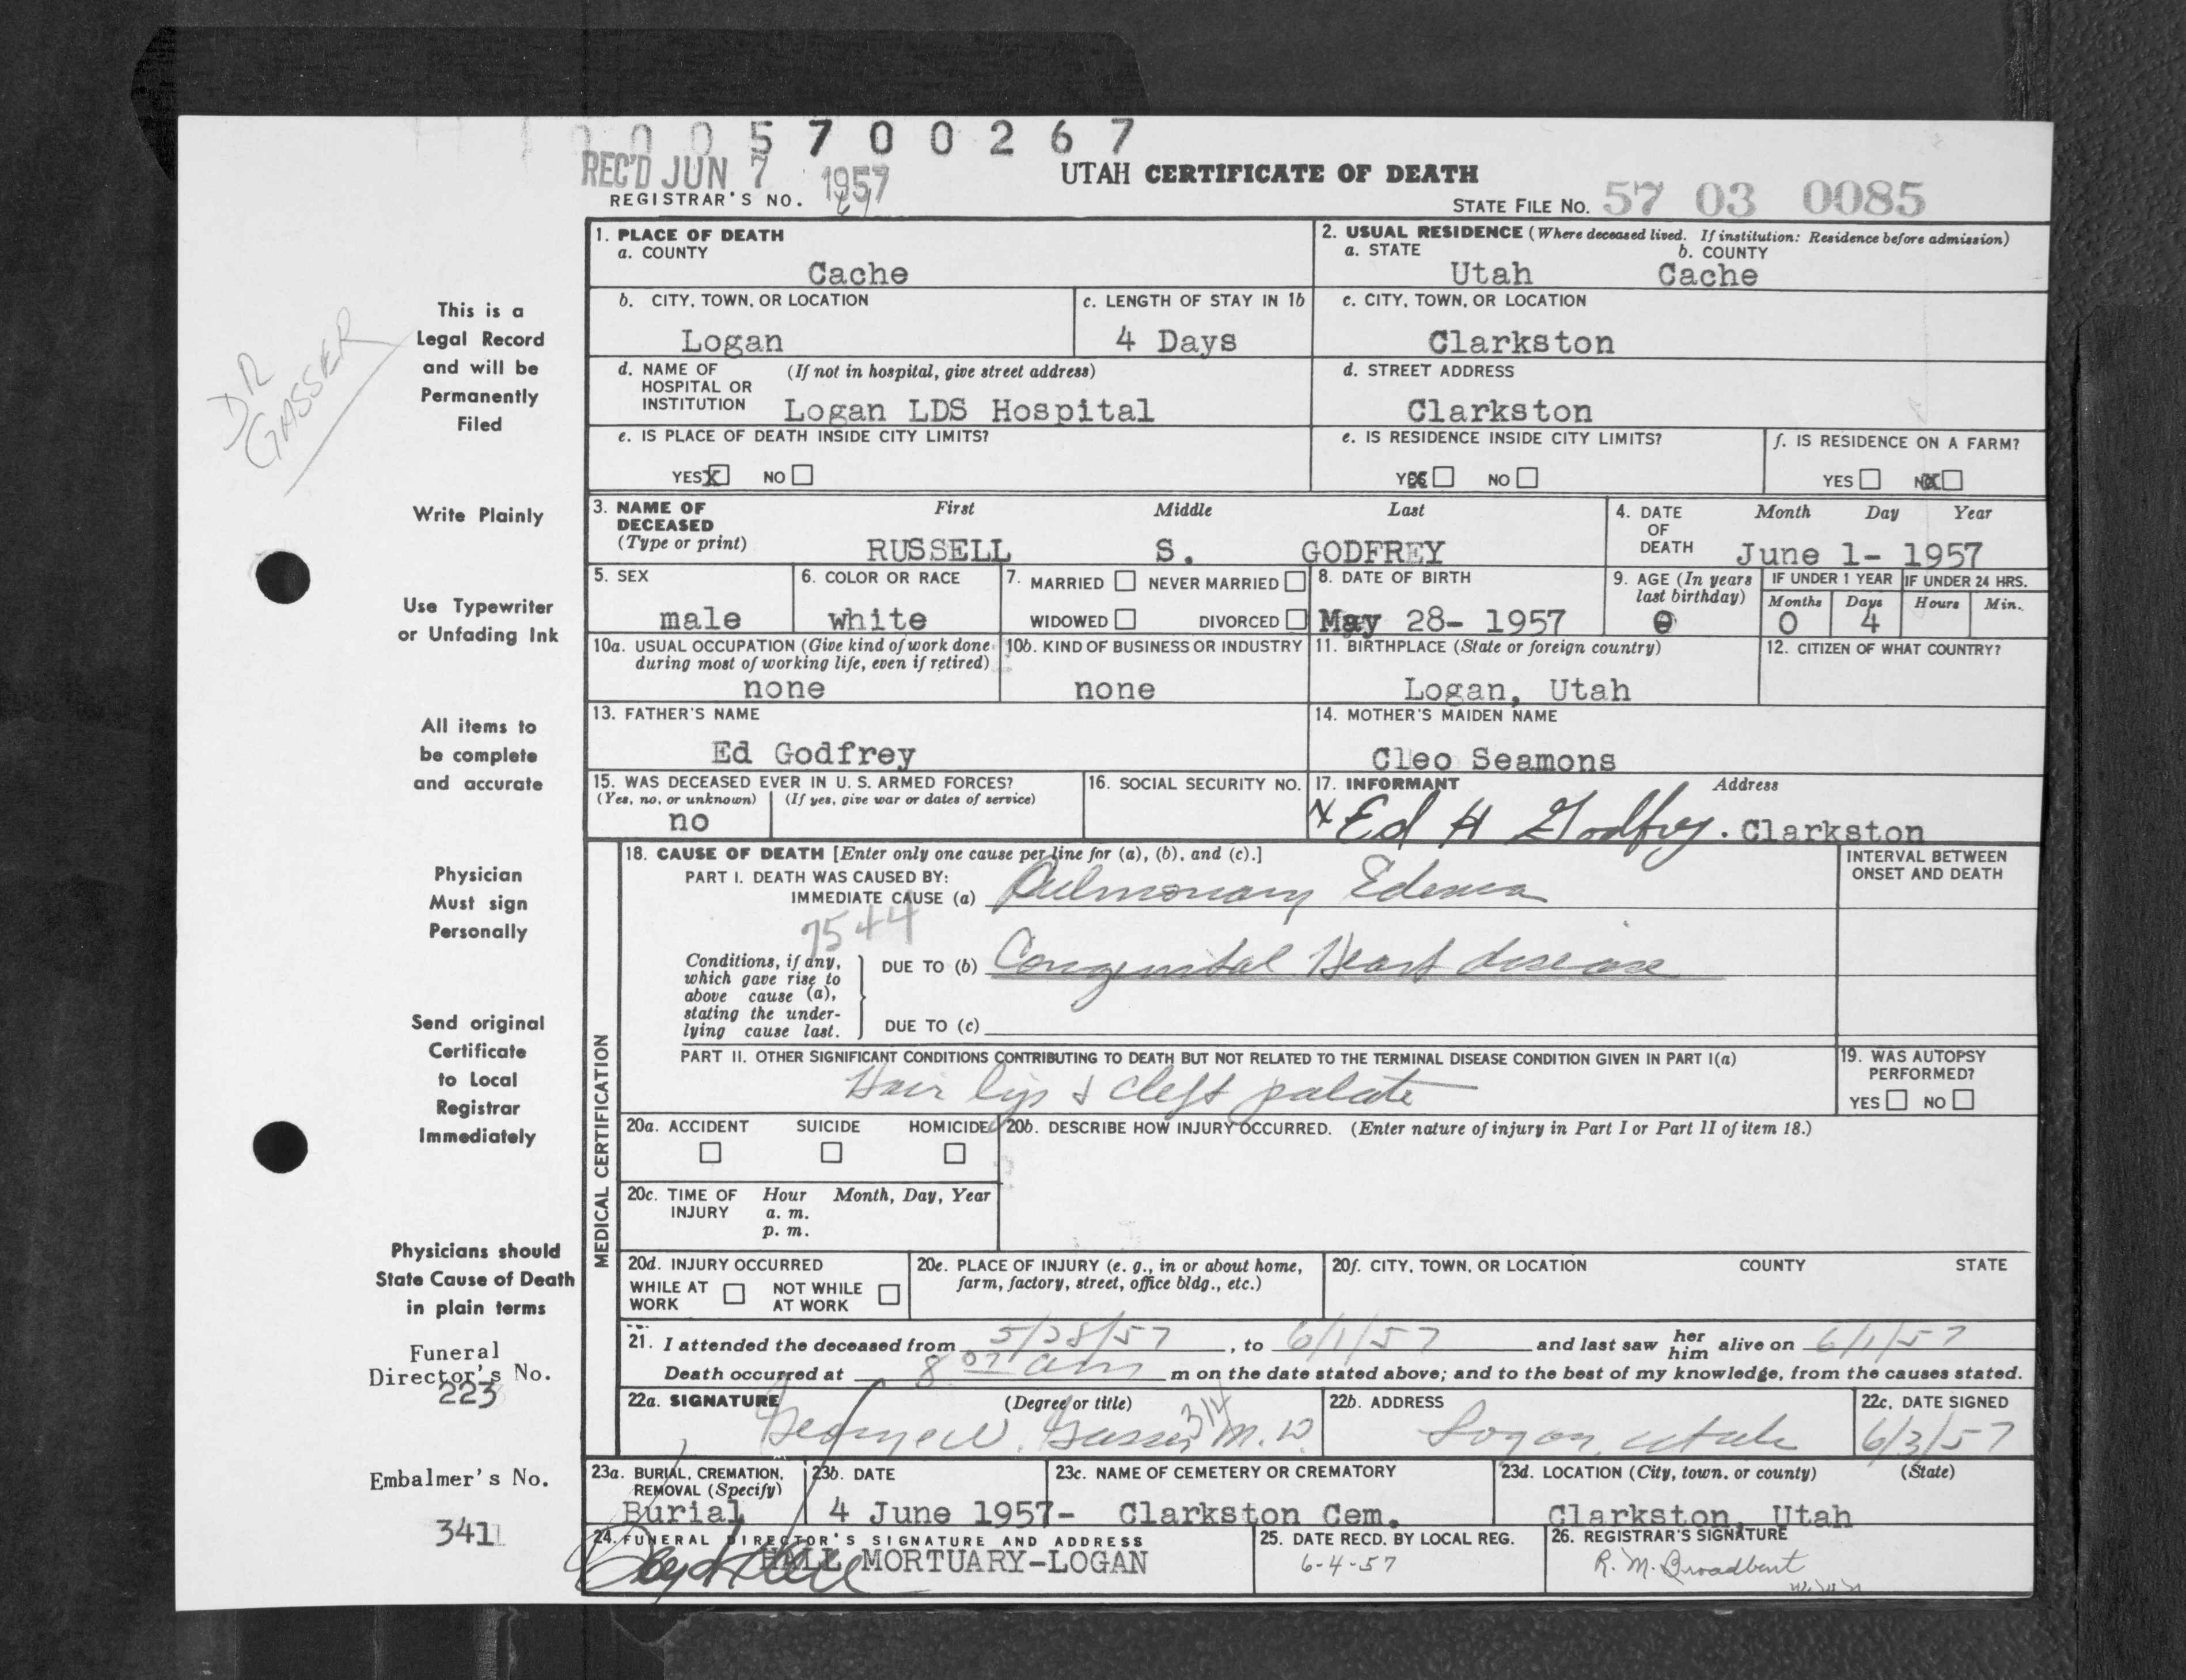 0 0 5 7 0 0 2 6 7
REC'D JUN 7 1957
UTAH CERTIFICATE OF DEATH
REGISTRAR'S NO.
STATE FILE NO. 57 03 0085
DR
GASSER
This is a
Legal Record
and will be
Permanently
Filed
Write Plainly
Use Typewriter
or Unfading Ink
All items to
be complete
and accurate
Physician
Must sign
Personally
Send original
Certificate
to Local
Registrar
Immediately
Physicians should
State Cause of Death
in plain terms
Funeral
Director's No.
223
Embalmer's No.
341
1. PLACE OF DEATH
a. COUNTY
Cache
2. USUAL RESIDENCE (Where deceased lived. If institution: Residence before admission)
a. STATE b. COUNTY
Utah Cache
b. CITY, TOWN, OR LOCATION
Logan
c. LENGTH OF STAY IN 1b
4 Days
c. CITY, TOWN, OR LOCATION
Clarkston
d. NAME OF (If not in hospital, give street address)
HOSPITAL OR
INSTITUTION Logan LDS Hospital
d. STREET ADDRESS
Clarkston
e. IS PLACE OF DEATH INSIDE CITY LIMITS?
YES X NO
e. IS RESIDENCE INSIDE CITY LIMITS?
YES NO
f. IS RESIDENCE ON A FARM?
YES NO
3. NAME OF First Middle Last
DECEASED
(Type or print) RUSSELL S. GODFREY
4. DATE Month Day Year
OF
DEATH June 1- 1957
5. SEX
male
6. COLOR OR RACE
white
7. MARRIED NEVER MARRIED
WIDOWED DIVORCED
8. DATE OF BIRTH
May 28- 1957
9. AGE (In years
last birthday)
0
IF UNDER 1 YEAR
Months Days
0 4
IF UNDER 24 HRS.
Hours Min.
10a. USUAL OCCUPATION (Give kind of work done
during most of working life, even if retired)
none
10b. KIND OF BUSINESS OR INDUSTRY
none
11. BIRTHPLACE (State or foreign country)
Logan, Utah
12. CITIZEN OF WHAT COUNTRY?
13. FATHER'S NAME
Ed Godfrey
14. MOTHER'S MAIDEN NAME
Cleo Seamons
15. WAS DECEASED EVER IN U. S. ARMED FORCES?
(Yes, no, or unknown) (If yes, give war or dates of service)
no
16. SOCIAL SECURITY NO.
17. INFORMANT Address
X Ed H Godfrey. Clarkston
MEDICAL CERTIFICATION
18. CAUSE OF DEATH [Enter only one cause per line for (a), (b), and (c).]
PART I. DEATH WAS CAUSED BY:
IMMEDIATE CAUSE (a) Pulmonary Edema
7544
Conditions, if any,
which gave rise to
above cause (a),
stating the under-
lying cause last.
DUE TO (b) Congenital Heart disease
DUE TO (c)
INTERVAL BETWEEN
ONSET AND DEATH
PART II. OTHER SIGNIFICANT CONDITIONS CONTRIBUTING TO DEATH BUT NOT RELATED TO THE TERMINAL DISEASE CONDITION GIVEN IN PART I(a)
Hair lip & cleft palate
19. WAS AUTOPSY
PERFORMED?
YES NO
20a. ACCIDENT SUICIDE HOMICIDE
20b. DESCRIBE HOW INJURY OCCURRED. (Enter nature of injury in Part I or Part II of item 18.)
20c. TIME OF Hour Month, Day, Year
INJURY a. m.
p. m.
20d. INJURY OCCURRED
WHILE AT NOT WHILE
WORK AT WORK
20e. PLACE OF INJURY (e. g., in or about home,
farm, factory, street, office bldg., etc.)
20f. CITY, TOWN, OR LOCATION COUNTY STATE
21. I attended the deceased from 5/28/57, to 6/1/57 and last saw her him alive on 6/1/57
Death occurred at 8 07 am m on the date stated above; and to the best of my knowledge, from the causes stated.
22a. SIGNATURE (Degree or title)
George W. Gasser M.D.
22b. ADDRESS
Logan, Utah
22c. DATE SIGNED
6/3/57
23a. BURIAL, CREMATION,
REMOVAL (Specify)
Burial
23b. DATE
4 June 1957-
23c. NAME OF CEMETERY OR CREMATORY
Clarkston Cem.
23d. LOCATION (City, town, or county) (State)
Clarkston, Utah
24. FUNERAL DIRECTOR'S SIGNATURE AND ADDRESS
HALL MORTUARY-LOGAN
25. DATE RECD. BY LOCAL REG.
6-4-57
26. REGISTRAR'S SIGNATURE
R. M. Broadbent